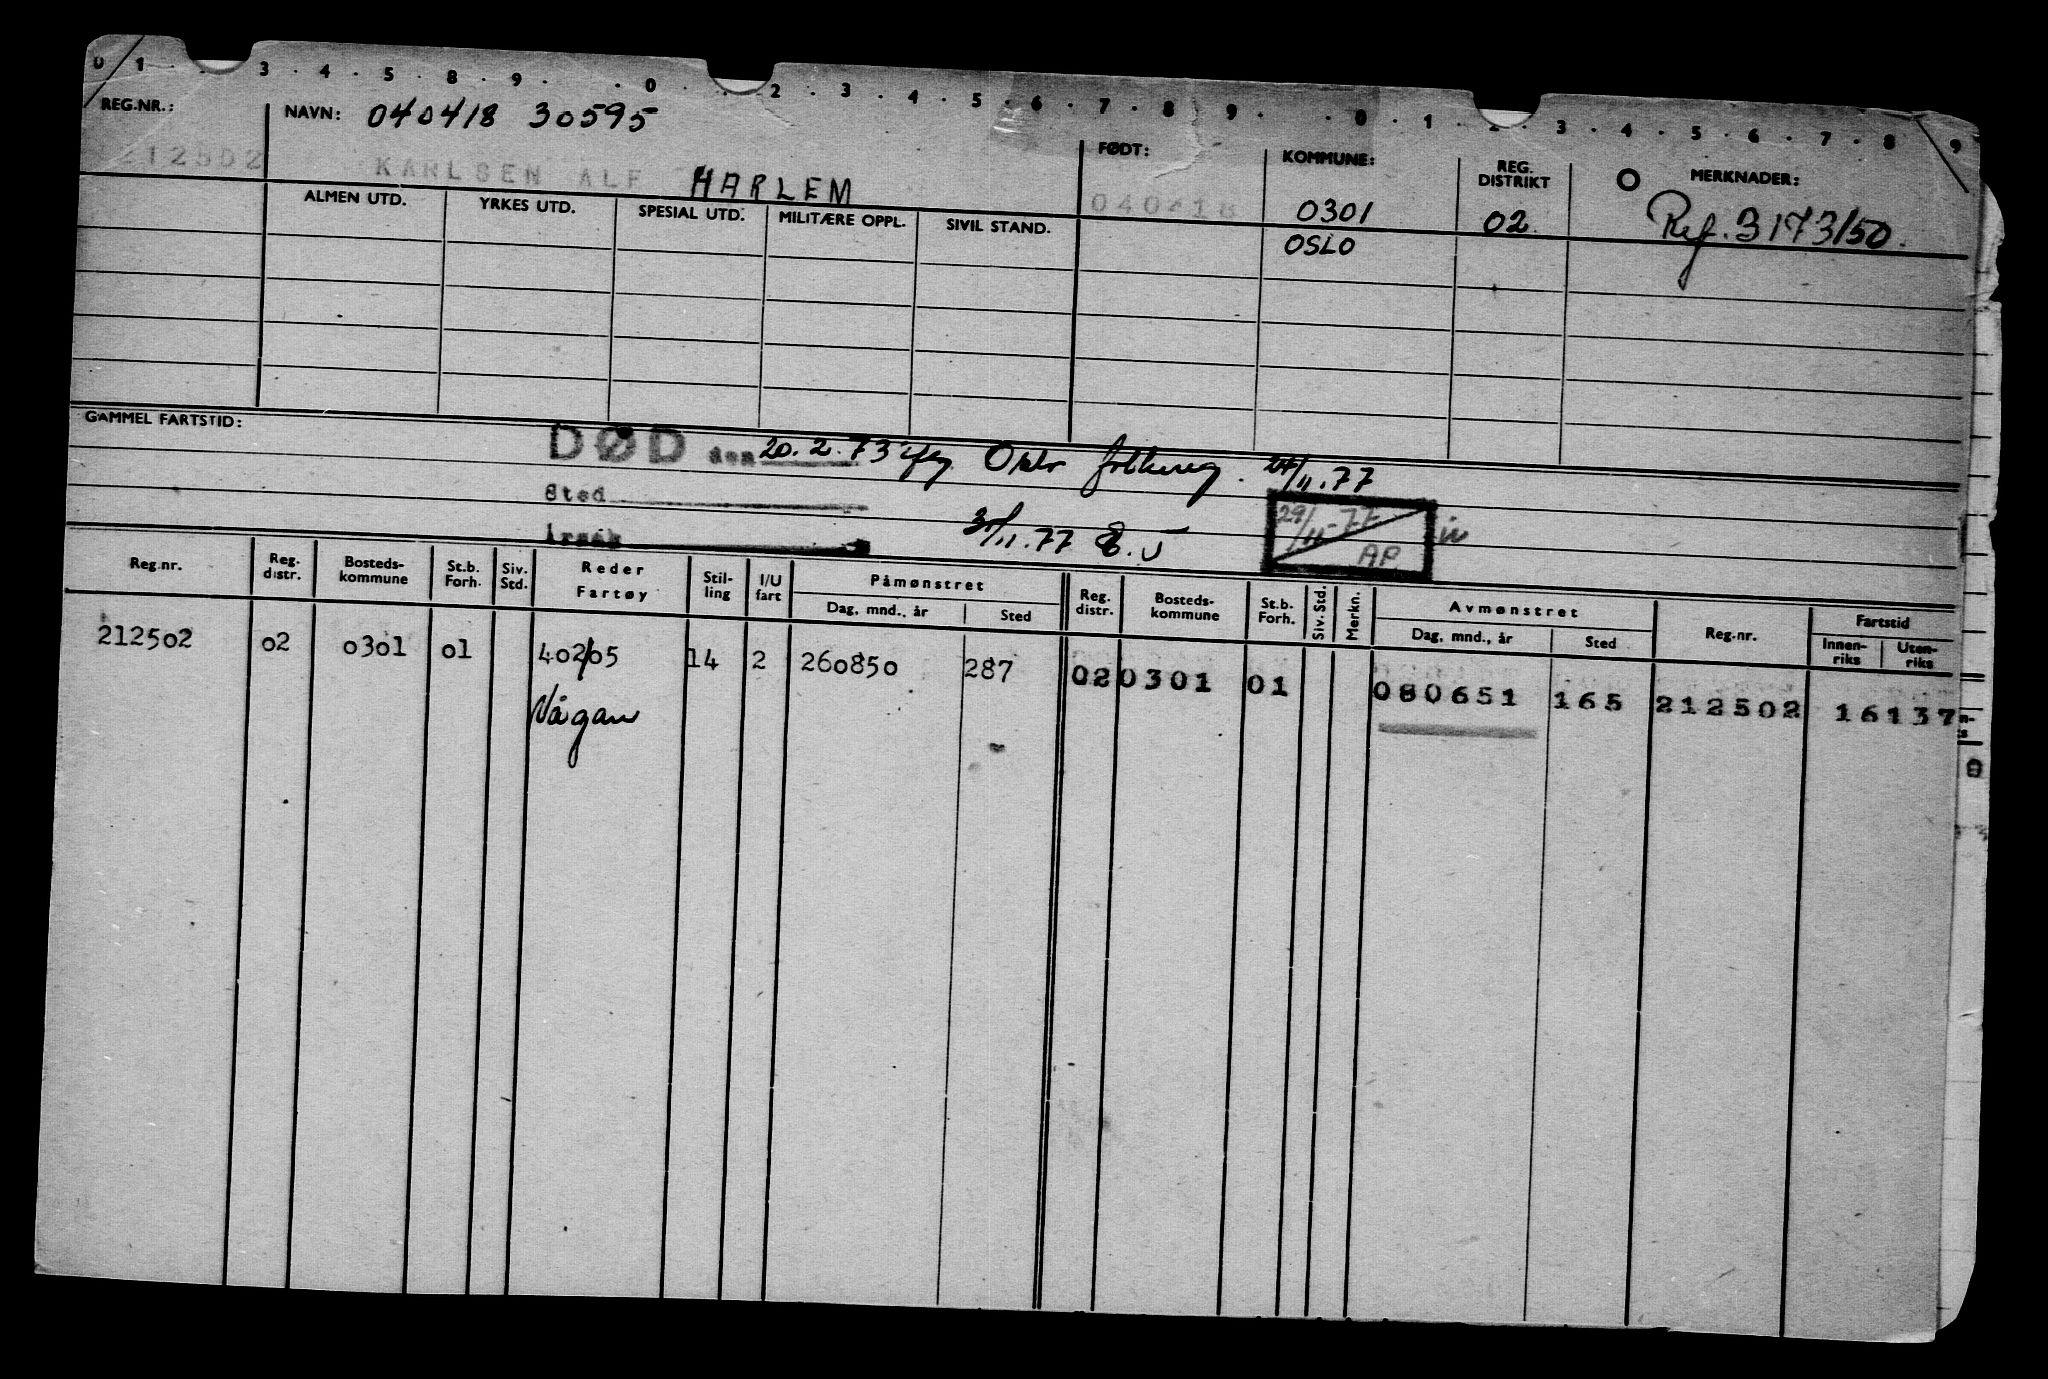 0 1 . . 3 . 4 . 5 . 8 . 9 . . 0 . 2 . 3 . 4 . 5 . 6 . 7 . 8 . 9 . . 0 . 1 . 2 . 3 . 4 . 5 . 6 . 7 . 8 9
REG.NR.: NAVN: 040418 30595 FØDT: KOMMUNE: REG. DISTRIKT O MERKNADER:
212502 KARLSEN ALF HARLEM 040418 0301 02 Ref. 3173/50.
ALMEN UTD. YRKES UTD. SPESIAL UTD. MILITÆRE OPPL. SIVIL STAND. OSLO
GAMMEL FARTSTID:
DØD den 20.2.73 Oslo folkereg. 24/11.77
Sted
Årsak 30/11.77 29/11-77 AP
Reg.nr. Reg. distr. Bosteds-kommune St.b. Forh. Siv. Std. Reder Fartøy Stil-ling I/U fart Påmønstret Dag, mnd., år Sted Reg. distr. Bosteds-kommune St.b. Forh. Siv. Std. Merkn. Avmønstret Dag, mnd., år Sted Reg.nr. Fartstid Innen-riks Uten-riks
212502 02 0301 01 402/05 14 2 260850 287 02 0301 01 080651 165 212502 16137
Vågan